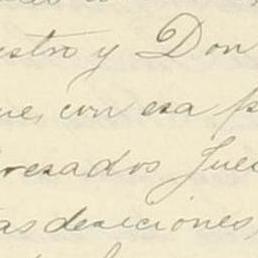 estro y Don
ue, con esa p
resados Juec
as deseciones,